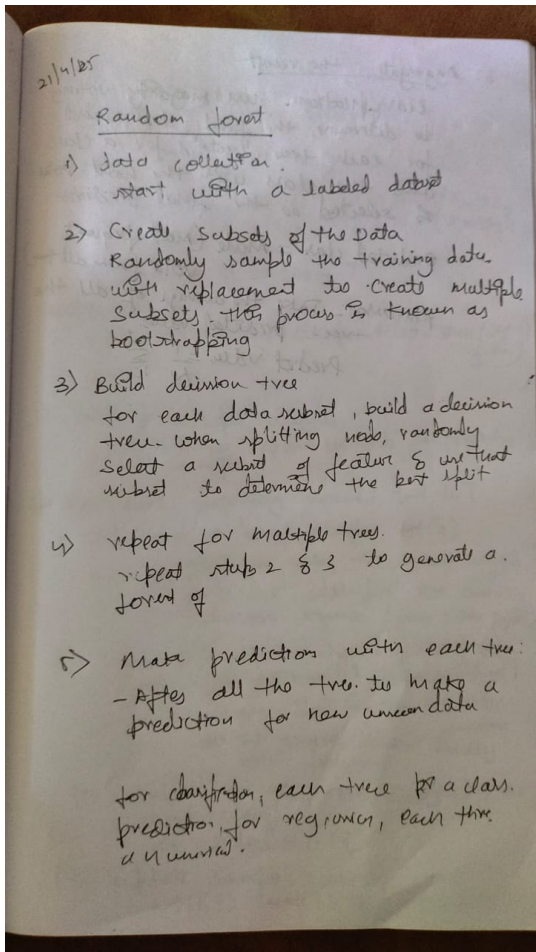 21/4/25
Random forest
1) data collection.
start with a labeled dataset
2) Create Subsets of the Data
Randomly sample the training data
with replacement to Create multiple
Subsets. this process is known as
bootstrapping
3) Build decission tree
for each data subset, build a decision
tree. when splitting node, randomly
Select a subset of feature & use that
subset to determine the best split
4) repeat for multiple trees.
repeat steps 2 & 3 to generate a.
forest of
5) Make prediction with each tree:
- After all the tree. to make a
prediction for new unseen data
for classification, each tree a class.
prediction, for regression, each
a